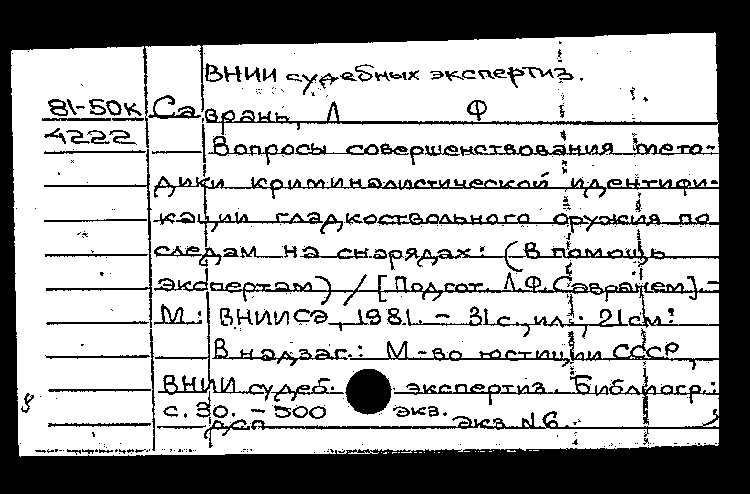 ВНИИ судебных экспертиз.
81-50к Саврань, Л Ф
4222
Вопросы совершенствования мето-
дики криминалистической идентифи-
кации гладкоствольного оружия по
следам на снарядах: (В помощь
экспертам) / [Подгот. Л.Ф.Савранем]. -
М.: ВНИИСЭ, 1981. - 31с., ил.; 21см.
В надзаг.: М-во юстиции СССР,
ВНИИ судеб. экспертиз. Библиогр.:
с. 30. - 500 экз.
б/сп экз N6.